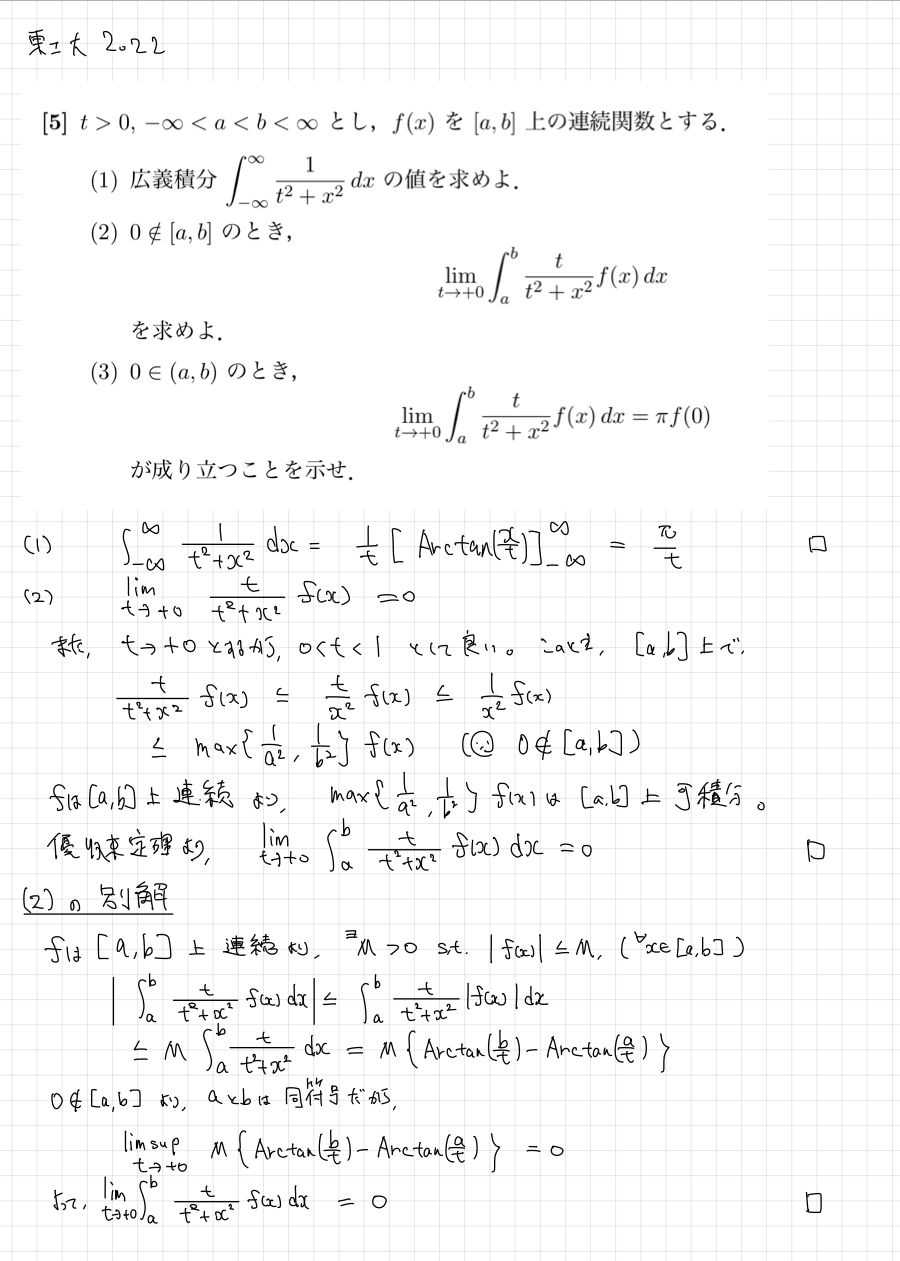 東工大 2022
[5] t > 0, −∞ < a < b < ∞ とし，f(x) を [a, b] 上の連続関数とする．
(1) 広義積分 ∫_{−∞}^{∞} 1/(t² + x²) dx の値を求めよ．
(2) 0 ∉ [a, b] のとき，
lim_{t→+0} ∫_a^b t/(t² + x²) f(x) dx
を求めよ．
(3) 0 ∈ (a, b) のとき，
lim_{t→+0} ∫_a^b t/(t² + x²) f(x) dx = πf(0)
が成り立つことを示せ．
(1) ∫_{-∞}^{∞} 1/(t²+x²) dx = 1/t [Arctan(x/t)]_{-∞}^{∞} = π/t □
(2) lim_{t→+0} t/(t²+x²) f(x) = 0
また, t→+0 とするから, 0<t<1 として良い。このとき, [a,b] 上で,
t/(t²+x²) f(x) ≤ t/x² f(x) ≤ 1/x² f(x)
≤ max{1/a², 1/b²} f(x) (∵ 0∉[a,b])
fは[a,b]上連続より, max{1/a², 1/b²} f(x)は[a,b]上可積分。
優収束定理より, lim_{t→+0} ∫_a^b t/(t²+x²) f(x) dx = 0 □
(2)の別解
fは[a,b]上連続より, ∃M>0 s.t. |f(x)| ≤ M, (∀x∈[a,b])
|∫_a^b t/(t²+x²) f(x) dx| ≤ ∫_a^b t/(t²+x²) |f(x)| dx
≤ M ∫_a^b t/(t²+x²) dx = M{Arctan(b/t) - Arctan(a/t)}
0∉[a,b]より, aとbは同符号だから,
limsup_{t→+0} M{Arctan(b/t) - Arctan(a/t)} = 0
よって, lim_{t→+0} ∫_a^b t/(t²+x²) f(x) dx = 0 □